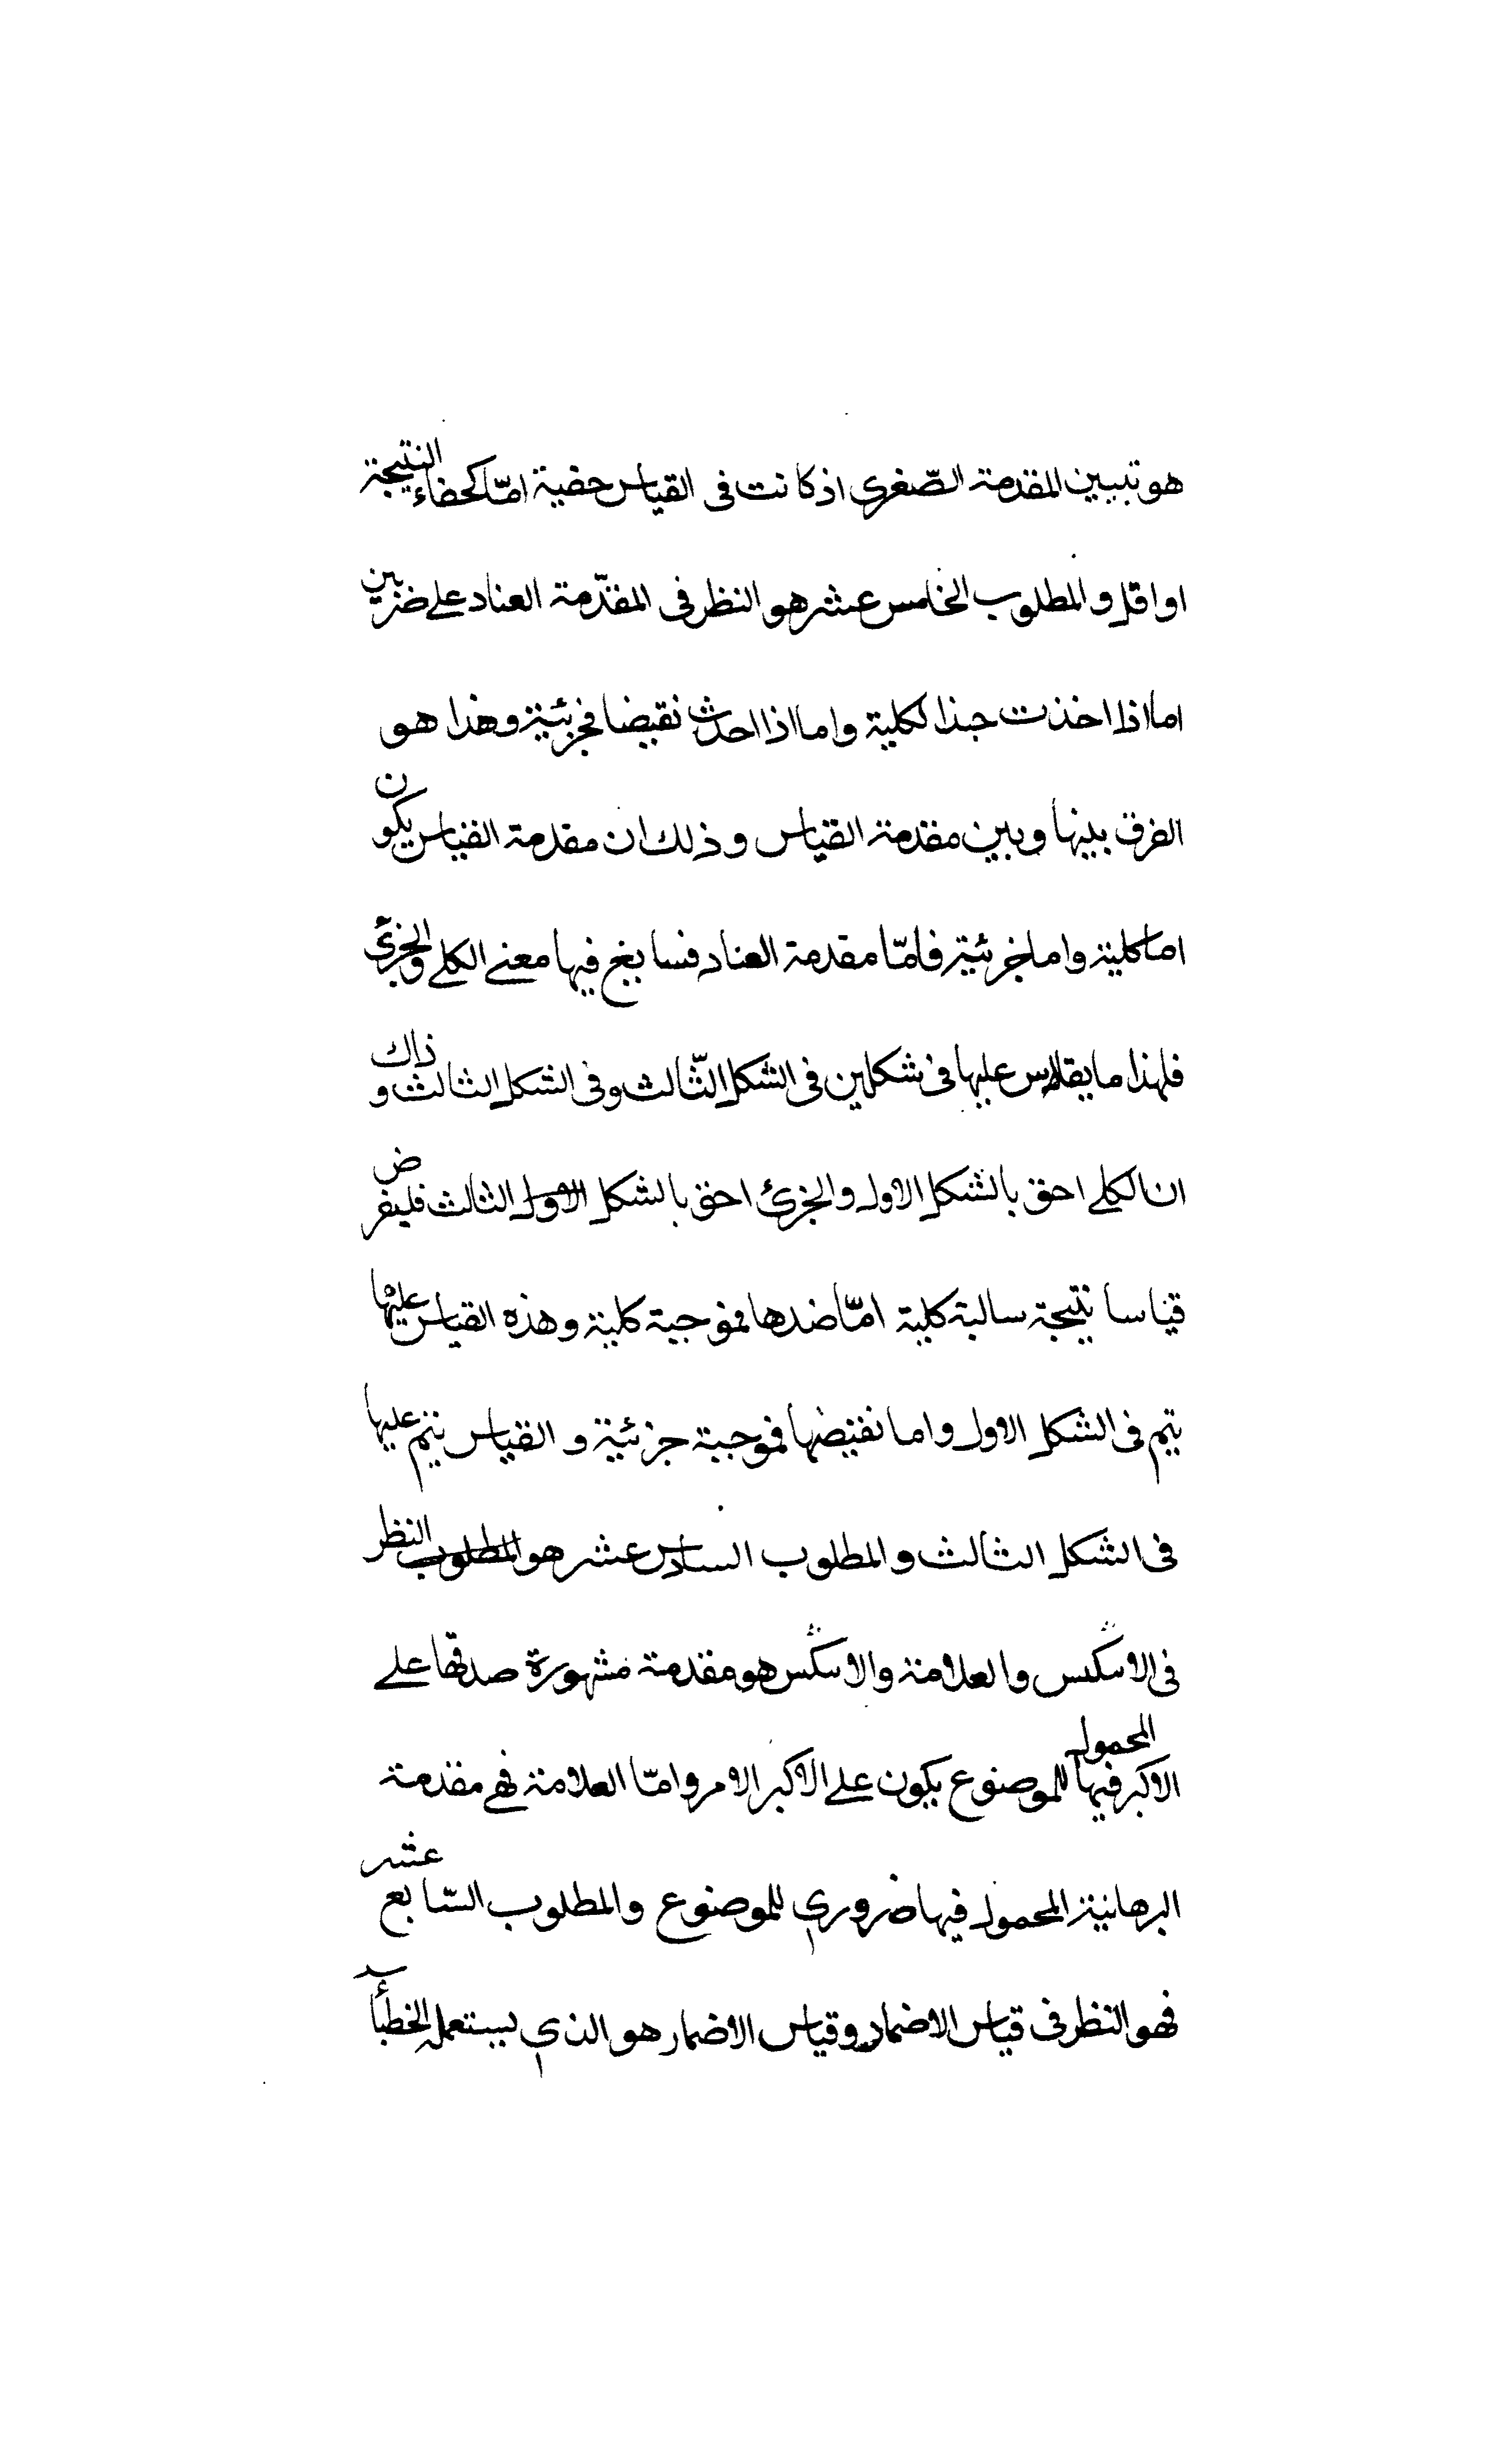 هو تبيين المقدمة الصّغرى اذ كانت فى القياس حفية امّا كحفاء النتيجة
او اقل والمطلوب الخامس عشر هو النظر فى المقدّمة العناد على ضربين
اما اذا اخذت جذا لكلية واما اذا احدث نقيضا فجزئية وهذا هو
الفرق بينها وبين مقدمة القياس وذلك ان مقدمة القياس يكون
اما كلية واما جزئية فامّا مقدمة العناد فسايغ فيها معنى الكلى والجزئ
فلهذا ما يقاس عليها فى شكلين فى الشكل الثّالث وفى الشكل الثالث وذاك
ان الكلى احق بالشكل الاول والجزئ احق بالشكل الاول الثالث فليفرض
قياسا نتيجة سالبة كلية امّا ضدها فموجبة كلية وهذه القياس عليها
يتم فى الشكل الاول واما نقيضها فموجبة جزئية و القياس يتم عليها
فى الشكل الثالث والمطلوب السادس عشر هو المطلوب النظر
فى الاسكس والعلامة والاسكس هو مقدمة مشهورة صدقها على
الاكبر فيها المحمول للموضوع يكون على الاكبر الامر وامّا العلامة فهى مقدمة
البرهانية المحمول فيها ضرورى للموضوع والمطلوب السّابع عشر
فهو النظر فى قياس الاضمار وقياس الاضمار هو الذى يستعمله الخطباء